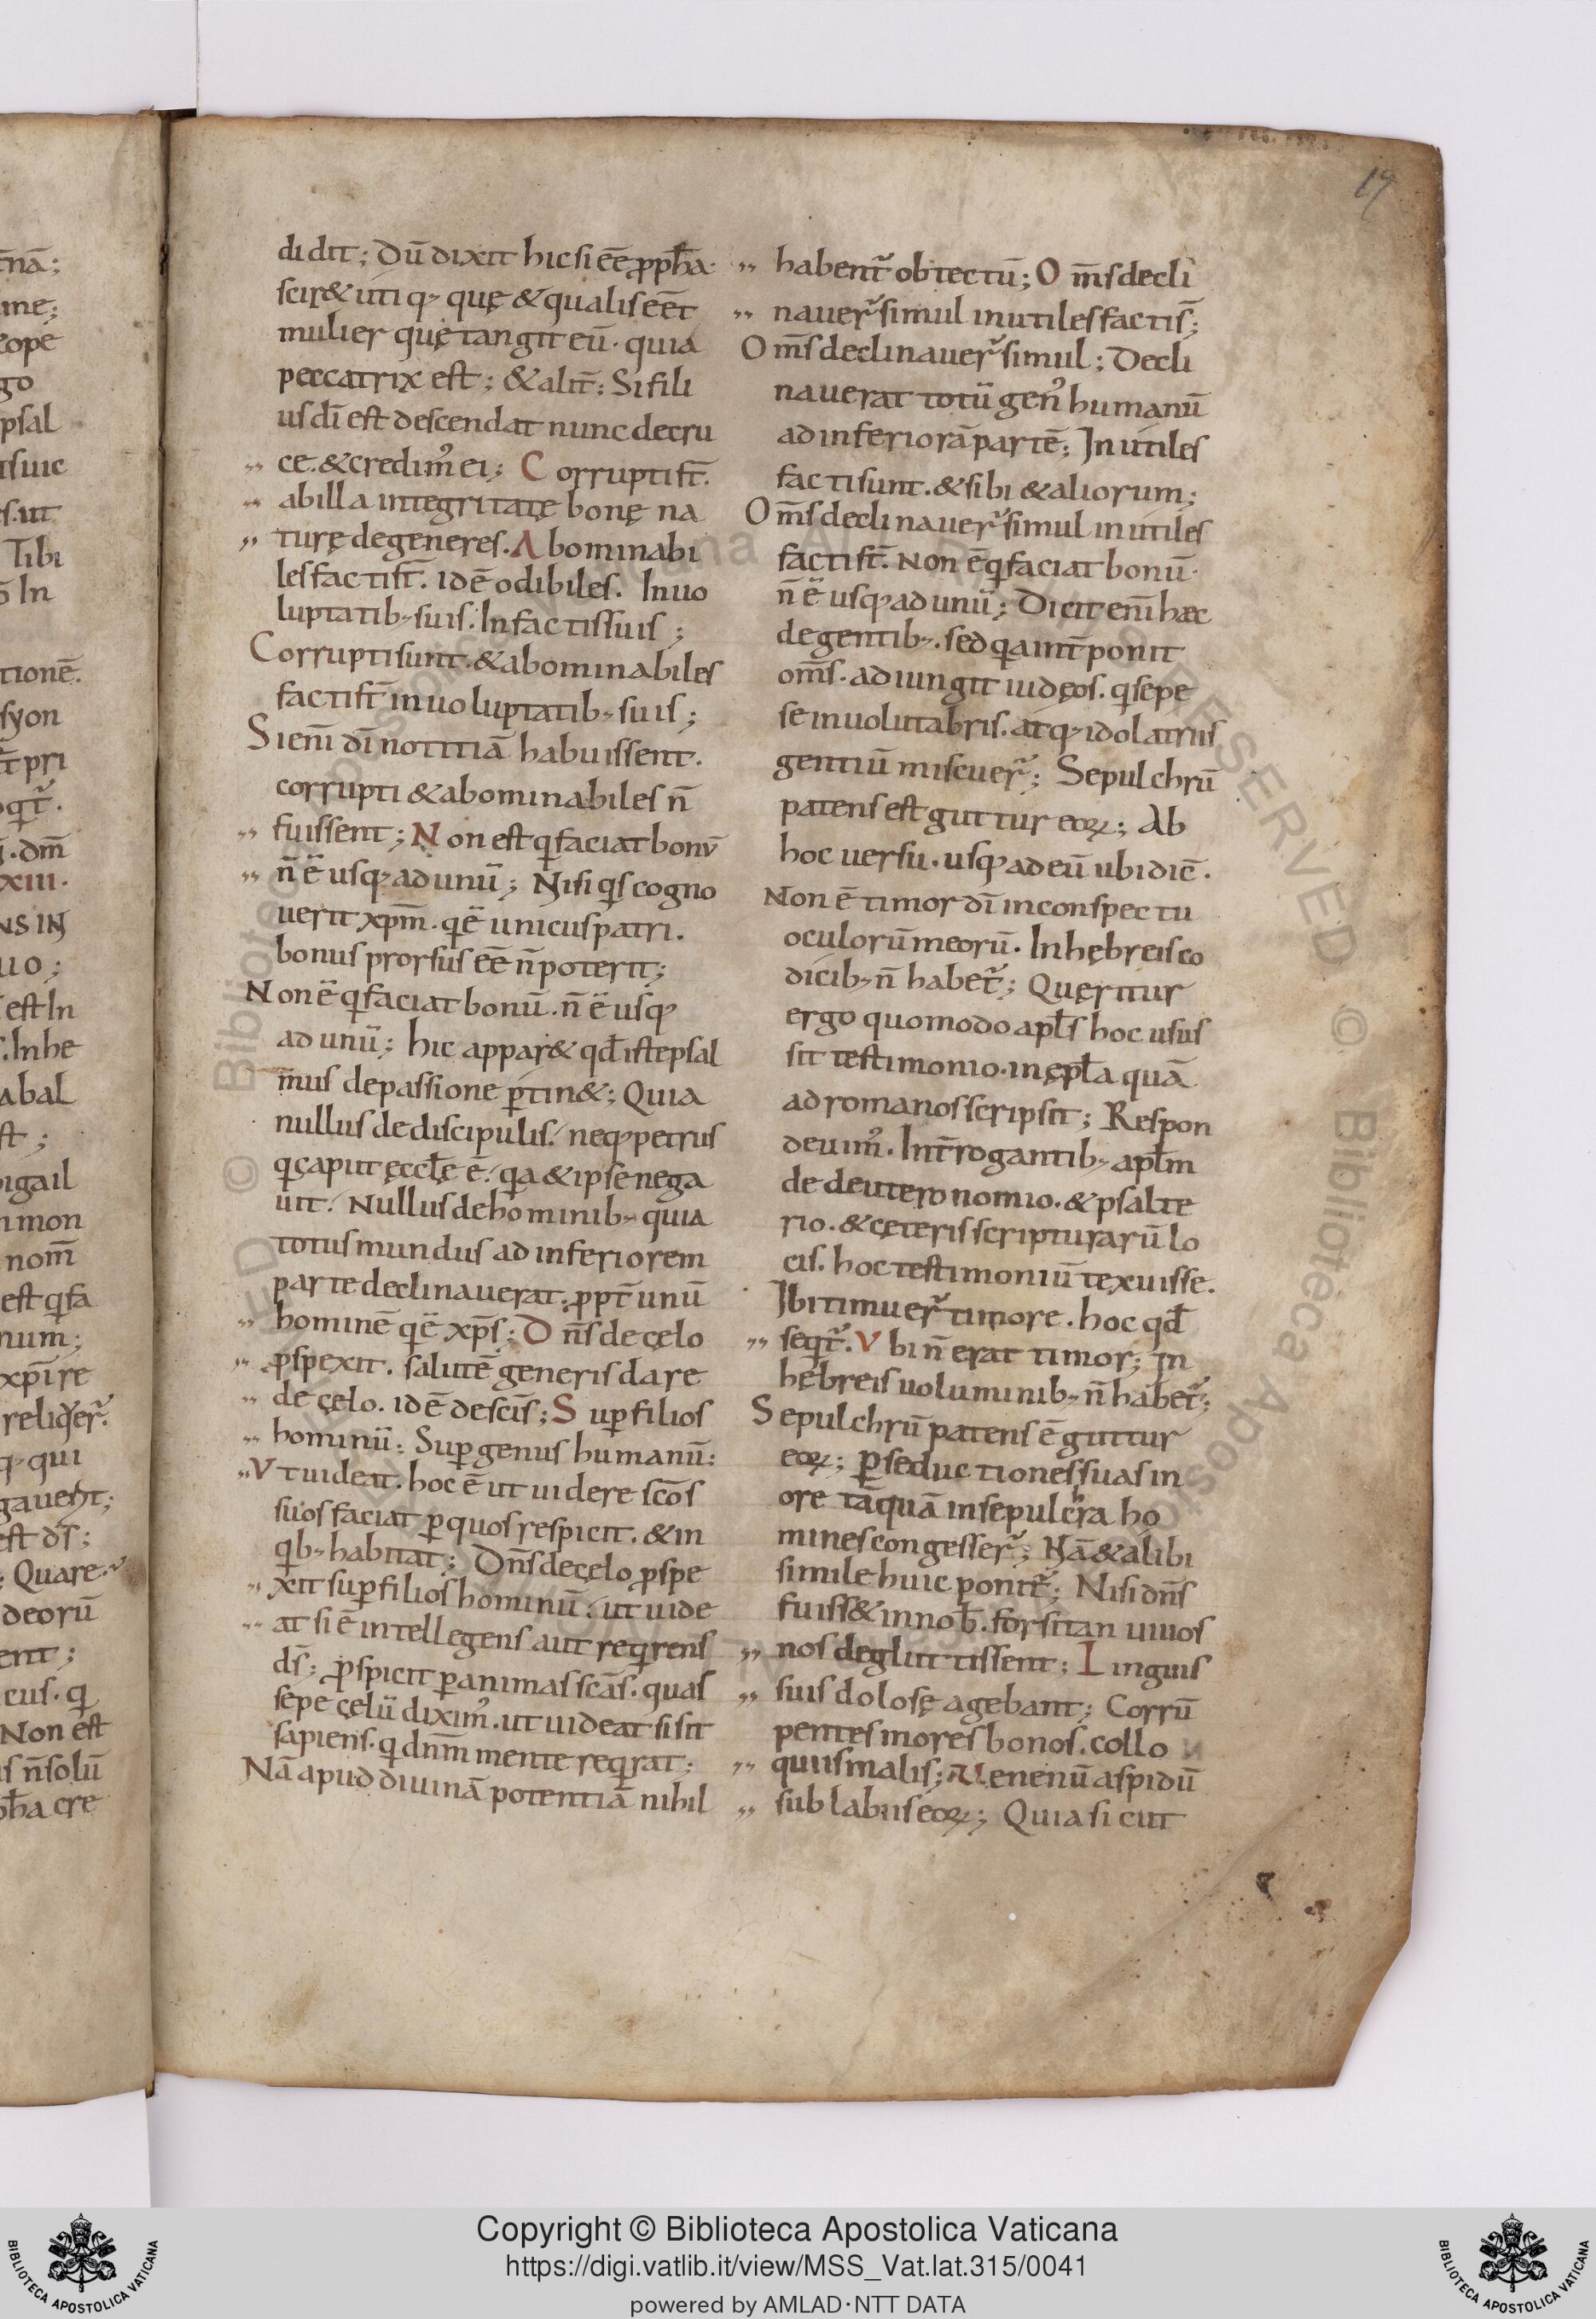 19
didit; Dū dixit hic si eē̄ ꝓph̄a·
scir& utiq; quę & qualis eēt
mulier quę tangit eū· quia
peccatrix est; & alit̄: Si fili
us dī est descendat nunc de cru
ce. & credimꝰ ei; Corrupti s̄t.
ab illa integritate bonę na
turę degeneres. Abominabi
les facti s̄t. idē odibiles. In uo
luptatib; suis. In factis suis;
Corrupti sunt. & abominabiles
facti s̄t in uoluptatib; suis;
Si enī dī notitiā habuissent.
corrupti & abominabiles n̄
fuissent; Non est qi faciat bonū
n̄ ē usq; ad unū; Nisi qis cogno
uerit xp̄m. qi ē unicus patri.
bonus prorsus eē n̄ poterit;
Non ē qi faciat bonū. n̄ ē usq;
ad unū; hic appar& qd̄ iste psal
mus de passione ꝑtin&; Quia
nullus de discipulis. neq; petrus
qi caput ęccl̄ę ē. qa & ipse nega
uit. Nullus de hominib; quia
totus mundus ad inferiorem
parte declinauerat. ꝓpt̄ unū
hominē qi ē xp̄s; Dn̄s de cęlo
ꝓspexit. salutē generis dare
de cęlo. id ē descīs; Suꝑ filios
hominū: Suꝑ genus humanū:
Vt uideat. hoc ē ut uidere scōs
suos faciat ꝑ quos respicit. & in
qib; habitat; Dn̄s de cęlo ꝓspe
xit suꝑ filios hominū. ut uide
at si ē intellegens aut reqirens
dm̄; ꝓspicit ꝑ animas scās. quas
sepe cęlū diximꝰ. ut uideat si sit
sapiens. qi dn̄m mente reqirat:
Nā apud diuinā potentiā nihil
habent᷑ obtectū; Om̄s decli
nauer᷑ simul inutiles facti s̄;
Om̄s declinauer᷑ simul; Decli
nauerat totū genꝰ humanū
ad inferiorā partē; Inutiles
facti sunt. & sibi & aliorum;
Om̄s declinauer᷑ simul inutiles
facti s̄t. Non ē qi faciat bonū·
n̄ ē usq; ad unū; Dicit enī hæc
de gentib;. sed qa int̄ ponit
om̄s. adiungit iudęos. qi sepe
se inuolutabris. atq; idolatriis
gentiū miscuer᷑; Sepulchrū
patens est guttur eoꝝ; Ab
hoc uersu. usq; ad eū ubi diē.
Non ē timor dī in conspectu
oculorū meorū. In hębreis co
dicib; n̄ habet᷑; Quęritur
ergo quomodo apl̄s hoc usus
sit testimonio. in ępl̄a quā
ad romanos scripsit; Respon
deuimꝰ. Int̄rogantib; apl̄m
de deuteronomio. & psalte
rio. & cęteris scripturarū lo
cis. hoc testimoniū texuisse.
Ibi timuer᷑ timore. hoc qd̄
seqit᷑. Vbi n̄ erat timor; In
hębreis uoluminib; n̄ habet᷑;
Sepulchrū patens ē guttur
eoꝝ; ꝑ seductiones suas in
ore tāquā in sepulcra ho
mines congesser᷑; Nā & alibi
simile huic ponit᷑; Nisi dn̄s
fuiss& in nob̄. forsitan uiuos
nos deglutissent; Linguis
suis dolose agebant; Corrū
pentes mores bonos. collo
quiis malis; Uenenū aspidū
sub labiis eoꝝ; Quia sicut
Copyright © Biblioteca Apostolica Vaticana
https://digi.vatlib.it/view/MSS_Vat.lat.315/0041
powered by AMLAD·NTT DATA